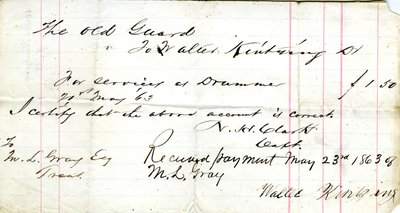 The Old Guard
To Walter Dr
For services as Drummer $ 1 50
21st May 63
I certify that the above account is correct
N. H. Clark
Capt.
To
M. L. Gray Esq
Treas.
Received payment May 23rd 1863 of
M. L. Gray
Walter